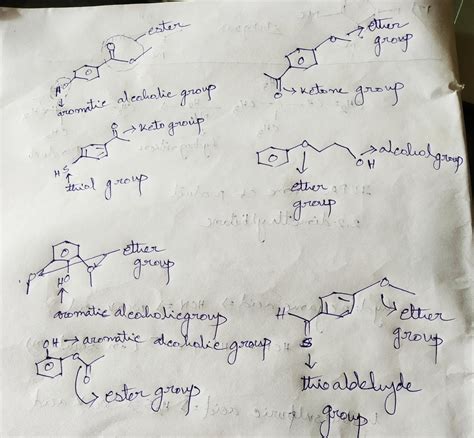 ester
O
O
HO
aromatic alcoholic group
O
ether
group
O
ketone group
O
keto group
HS
thial group
O
OH
alcohol group
ether
group
ether
group
O
O
HO
aromatic alcoholic group
OH
aromatic alcoholic group
O
O
ester group
O
ether
group
H
S
thioaldehyde
group